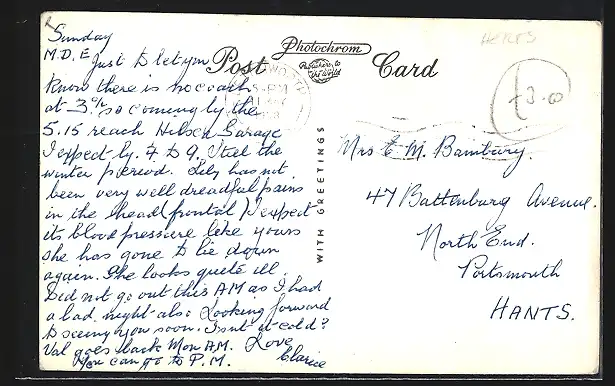 Sunday
M.D.E
Just to let you
know there is no coach
at 3 so coming by the
5.15 reach Hilsea Garage
I expect by. 7 to 9. Until the
winter period. Lily has not
been very well dreadful pains
in the head (frontal) I expect
its blood pressure like yours
she has gone to lie down
again. She looks quite ill
Did not go out this AM as I had
a bad night also Looking forward
to seeing you soon. Isnt it cold?
Val goes back Mon AM. Love
You can go to P.M. Clarice
Photochrom
Post Card
Publishers to
the World
WITH GREETINGS
HERTS
£3.00
Mrs E M. Bambury.
47 Battenburg Avenue.
North End.
Portsmouth
HANTS.